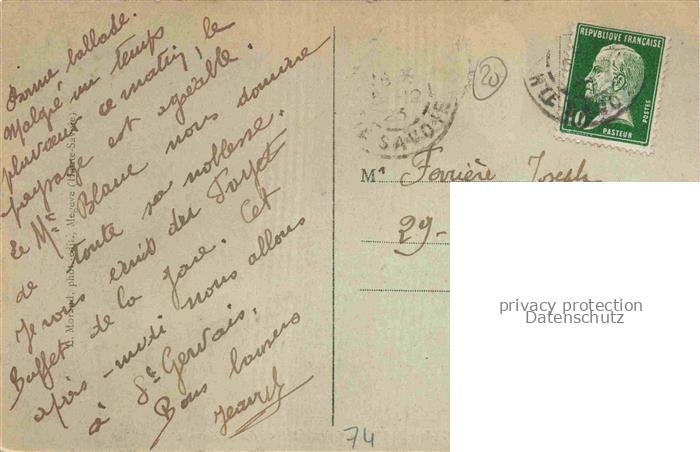 Bonne ballade.
Malgré un temps
pluvieux ce matin, le
paysage est agréable.
Le Mt Blanc nous domine
de toute sa noblesse.
Je vous écris du Fayet
Buffet de la Gare. Cet
après-midi nous allons
à St Gervais.
Bons baisers
Mégève (Haute-Savoie)
REPVBLIQUE FRANÇAISE
10
POSTES
PASTEUR
SAVOIE
20
Mr Ferrière Joseph
29-
74
privacy protection
Datenschutz